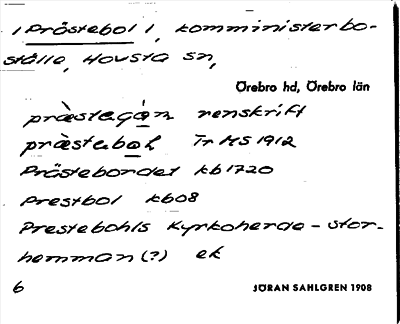 1 Prästebol 1, komministerbo-
ställe, Hovsta sn,
Örebro hd, Örebro län
præstegàn renskrift
præstebol Tr MS 1912
Prästebordet kb 1720
Prestbol kb08
Prestebohls Kyrkoherde-stor-
hemman (?) ek
6
JÖRAN SAHLGREN 1908